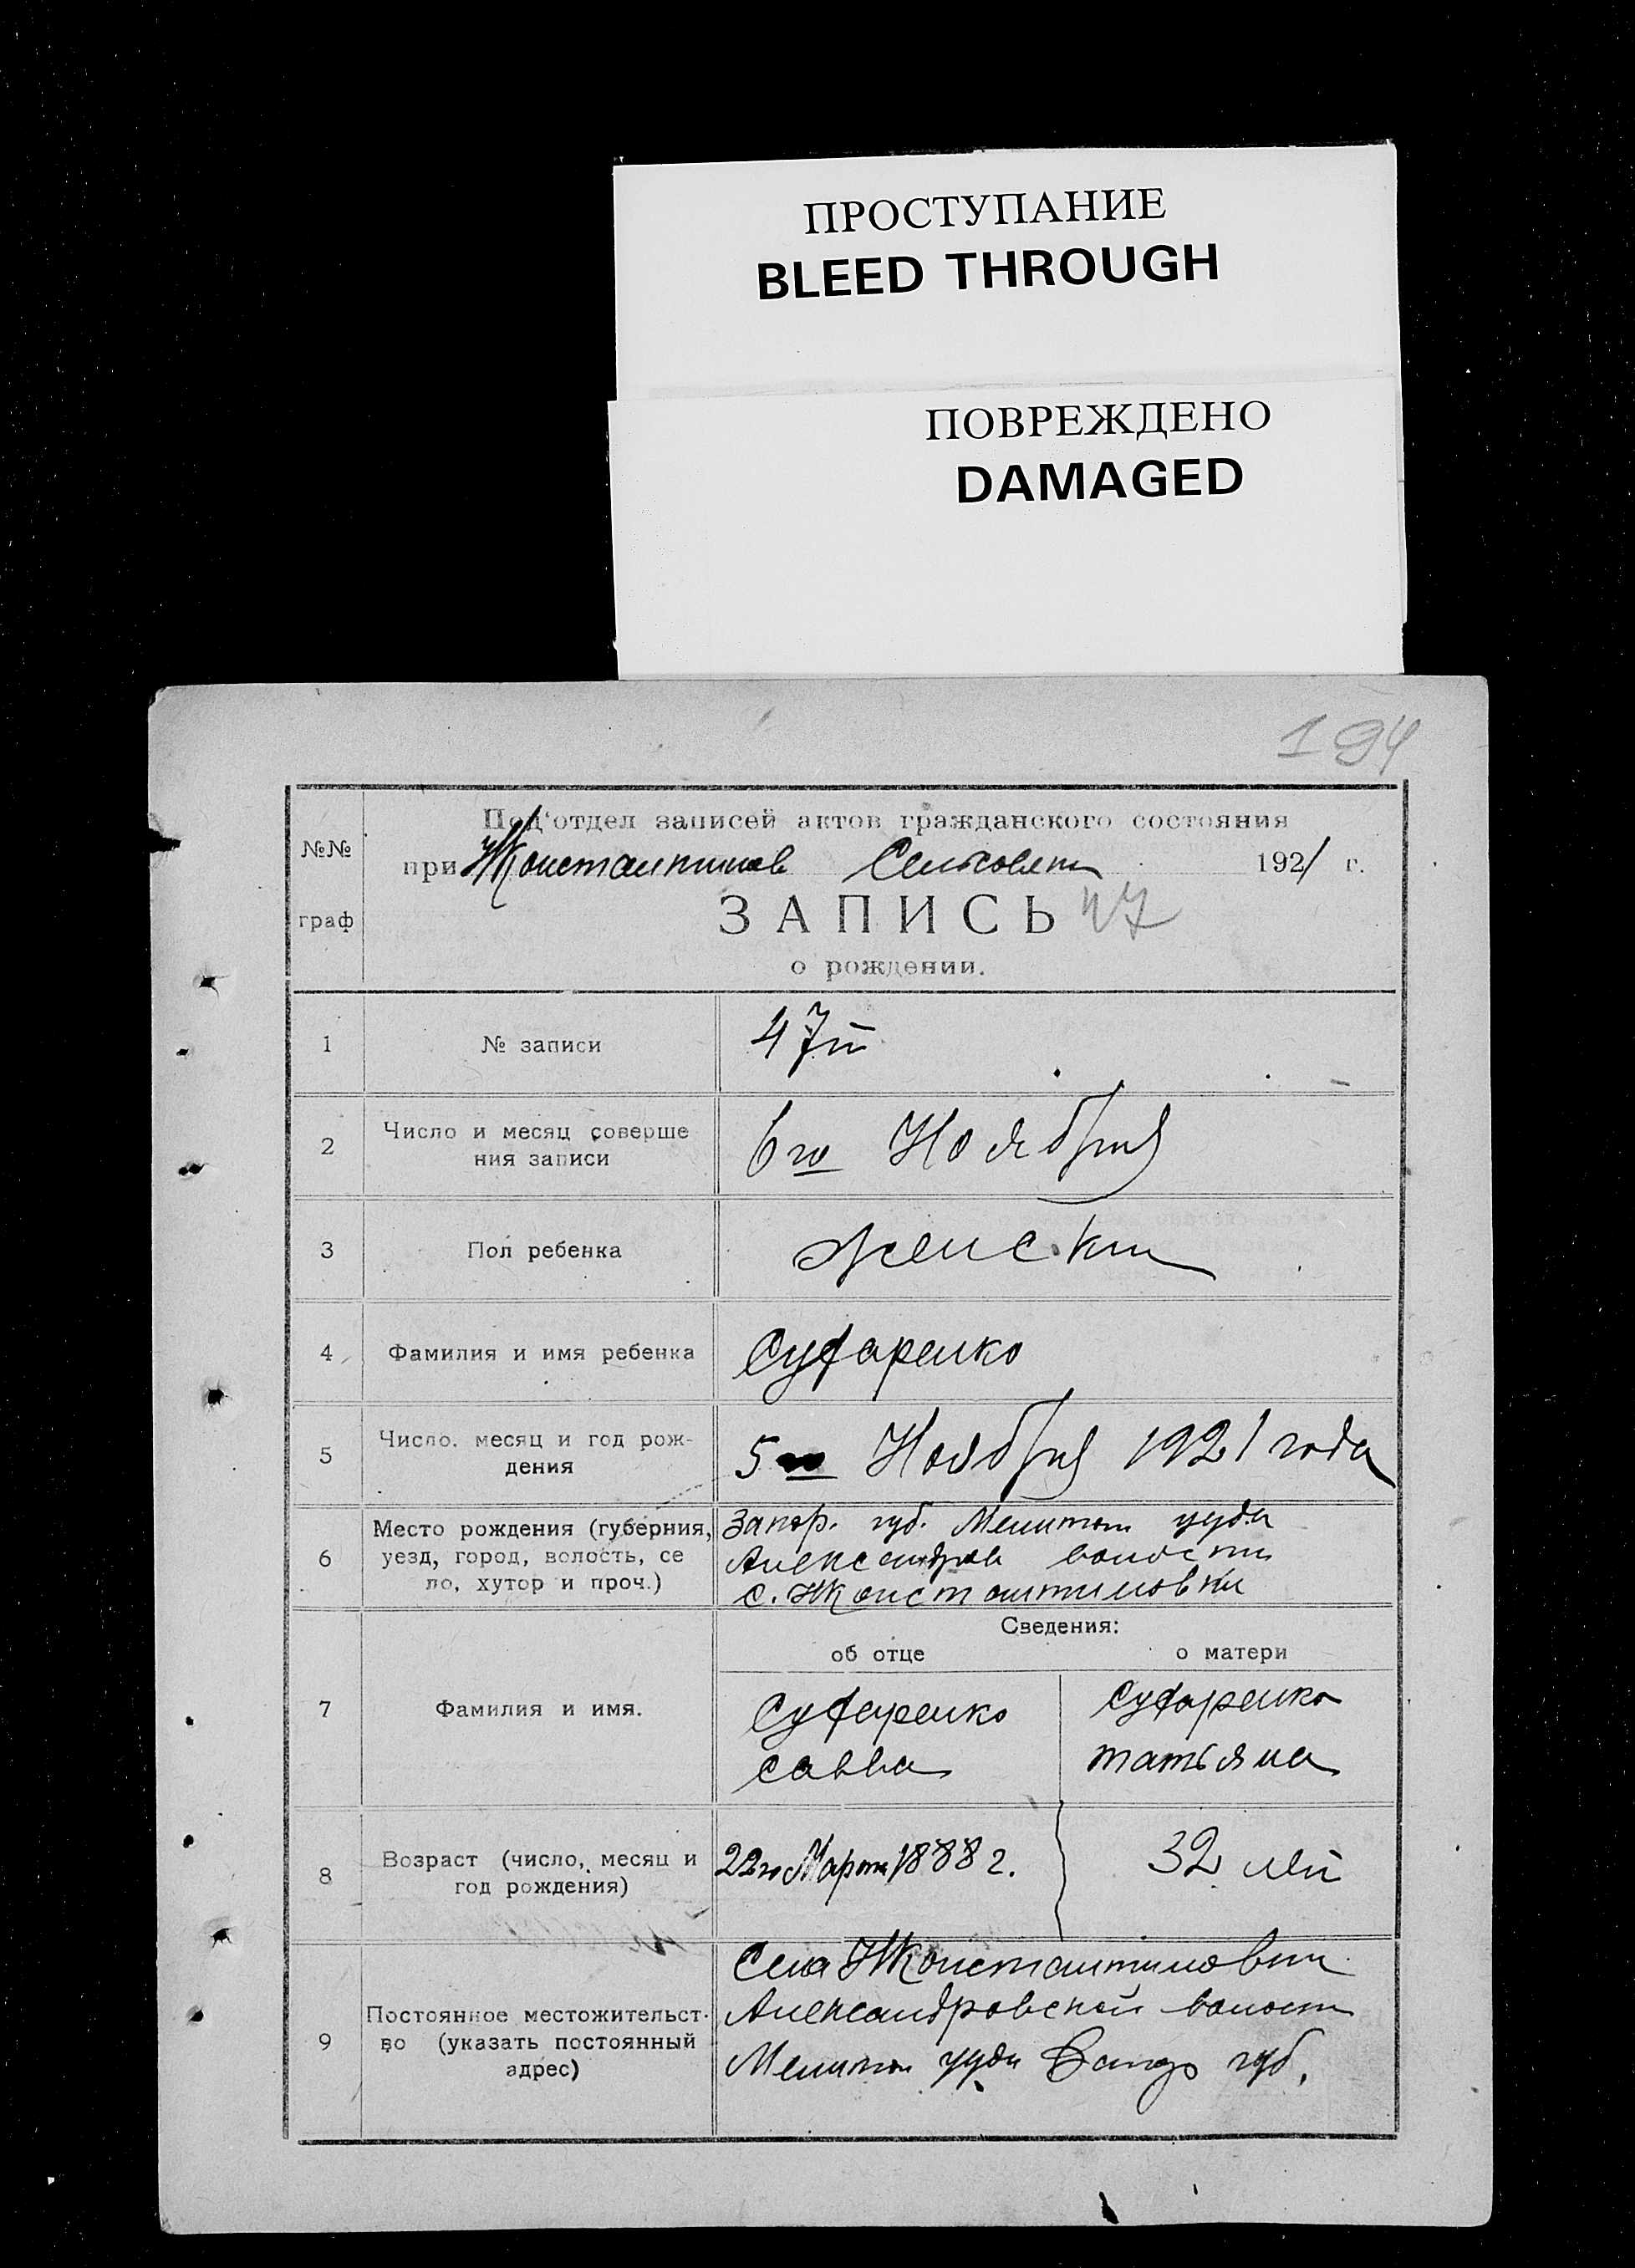 ПРОСТУПАНИЕ
BLEED THROUGH
ПОВРЕЖДЕНО
DAMAGED
194
№№ граф
Под'отдел записей актов гражданского состояния
при Константинов Сельсовети 1921 г.
ЗАПИСЬ 47
о рождении.
1 № записи 47й
2 Число и месяц соверше
ния записи
6го Ноября
3 Пол ребенка женски
4 Фамилия и имя ребенка Суфаренко
5 Число. месяц и год рож-
дения
5го Ноября 1921 года
6 Место рождения (губерния,
уезд, город, волость, се
ло, хутор и проч.)
Запор. губ. Мелитоп уезда
Александров волости
с. Константиновки
Сведения:
об отце о матери
7 Фамилия и имя.
Суфаренко
Савва
Суфаренко
татьяна
8 Возраст (число, месяц и
год рождения)
22го Марта 1888 г.
32 лет
9 Постоянное местожительст-
во (указать постоянный
адрес)
Села Константиновки
Александровской волости
Мелитоп уезда губ.